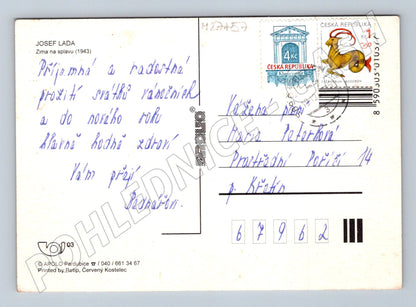 JOSEF LADA
Zima na splavu (1943)
Příjemné a radostné
prožití svátků vánočních
a do nového roku
hlavně hodně zdraví
Vám přejí
ČESKÁ REPUBLIKA
4Kč
ČESKÁ REPUBLIKA
Vážená paní
Marie Peterková
Prostřední Poříčí 14
p. Křetín
6 7 9 6 2
APOLLO
93
© APOLO Pardubice ☎ / 040 / 661 34 67
Printed by Ratip, Červený Kostelec
POHLEDNICE